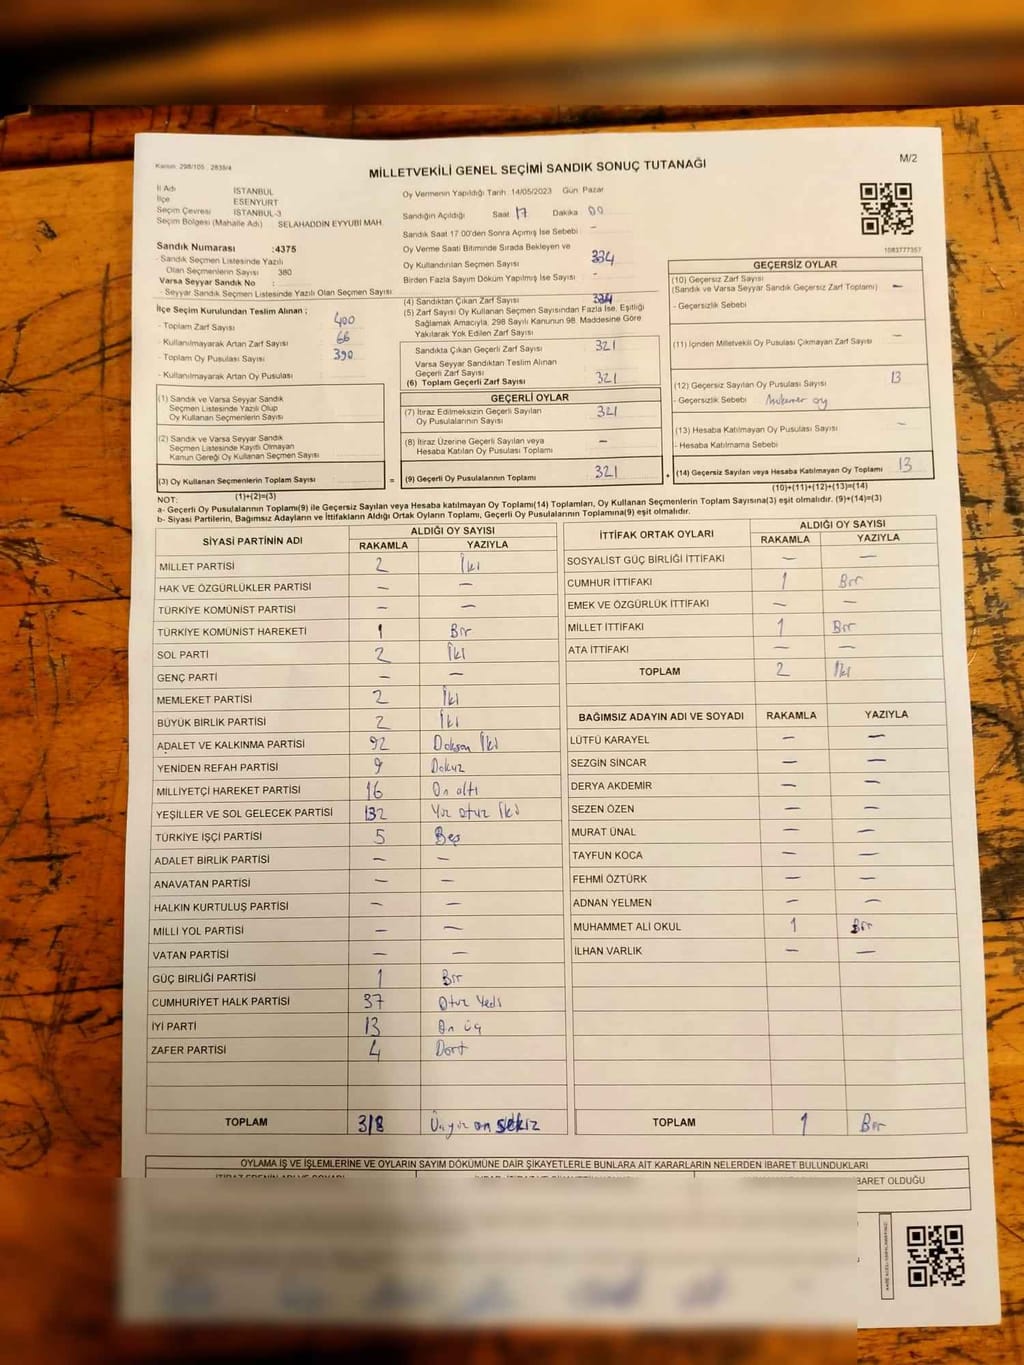 Kanun: 298/105 , 2839/4
MİLLETVEKİLİ GENEL SEÇİMİ SANDIK SONUÇ TUTANAĞI
M/2
İl Adı İSTANBUL
İlçe ESENYURT
Seçim Çevresi İSTANBUL-3
Seçim Bölgesi (Mahalle Adı) SELAHADDİN EYYUBİ MAH.
Sandık Numarası :4375
- Sandık Seçmen Listesinde Yazılı
Olan Seçmenlerin Sayısı 380
Varsa Seyyar Sandık No :
- Seyyar Sandık Seçmen Listesinde Yazılı Olan Seçmen Sayısı
İlçe Seçim Kurulundan Teslim Alınan ;
- Toplam Zarf Sayısı 400
- Kullanılmayarak Artan Zarf Sayısı 66
- Toplam Oy Pusulası Sayısı 390
- Kullanılmayarak Artan Oy Pusulası
(1) Sandık ve Varsa Seyyar Sandık
Seçmen Listesinde Yazılı Olup
Oy Kullanan Seçmenlerin Sayısı
(2) Sandık ve Varsa Seyyar Sandık
Seçmen Listesinde Kayıtlı Olmayan
Kanun Gereği Oy Kullanan Seçmen Sayısı
(3) Oy Kullanan Seçmenlerin Toplam Sayısı =
(1)+(2)=(3)
Oy Vermenin Yapıldığı Tarih 14/05/2023 Gün Pazar
Sandığın Açıldığı Saat 17 Dakika 00
Sandık Saat 17.00'den Sonra Açılmış İse Sebebi -
Oy Verme Saati Bitiminde Sırada Bekleyen ve
Oy Kullandırılan Seçmen Sayısı 334
Birden Fazla Sayım Döküm Yapılmış İse Sayısı -
(4) Sandıktan Çıkan Zarf Sayısı 334
(5) Zarf Sayısı Oy Kullanan Seçmen Sayısından Fazla İse, Eşitliği
Sağlamak Amacıyla, 298 Sayılı Kanunun 98. Maddesine Göre
Yakılarak Yok Edilen Zarf Sayısı
Sandıkta Çıkan Geçerli Zarf Sayısı 321
Varsa Seyyar Sandıktan Teslim Alınan
Geçerli Zarf Sayısı
(6) Toplam Geçerli Zarf Sayısı 321
GEÇERLİ OYLAR
(7) İtiraz Edilmeksizin Geçerli Sayılan
Oy Pusulalarının Sayısı 321
(8) İtiraz Üzerine Geçerli Sayılan veya
Hesaba Katılan Oy Pusulası Toplamı -
(9) Geçerli Oy Pusulalarının Toplamı 321 +
1083777357
GEÇERSİZ OYLAR
(10) Geçersiz Zarf Sayısı
(Sandık ve Varsa Seyyar Sandık Geçersiz Zarf Toplamı) -
- Geçersizlik Sebebi
(11) İçinden Milletvekili Oy Pusulası Çıkmayan Zarf Sayısı -
(12) Geçersiz Sayılan Oy Pusulası Sayısı 13
- Geçersizlik Sebebi oy
(13) Hesaba Katılmayan Oy Pusulası Sayısı -
- Hesaba Katılmama Sebebi
(14) Geçersiz Sayılan veya Hesaba Katılmayan Oy Toplamı 13
(10)+(11)+(12)+(13)=(14)
NOT:
a- Geçerli Oy Pusulalarının Toplamı(9) ile Geçersiz Sayılan veya Hesaba katılmayan Oy Toplamı(14) Toplamları, Oy Kullanan Seçmenlerin Toplam Sayısına(3) eşit olmalıdır. (9)+(14)=(3)
b- Siyasi Partilerin, Bağımsız Adayların ve İttifakların Aldığı Ortak Oyların Toplamı, Geçerli Oy Pusulalarının Toplamına(9) eşit olmalıdır.
SİYASİ PARTİNİN ADI ALDIĞI OY SAYISI
RAKAMLA YAZIYLA
MİLLET PARTİSİ 2 İki
HAK VE ÖZGÜRLÜKLER PARTİSİ - -
TÜRKİYE KOMÜNİST PARTİSİ - -
TÜRKİYE KOMÜNİST HAREKETİ 1 Bir
SOL PARTİ 2 İki
GENÇ PARTİ - -
MEMLEKET PARTİSİ 2 İki
BÜYÜK BİRLİK PARTİSİ 2 İki
ADALET VE KALKINMA PARTİSİ 92 Doksan İki
YENİDEN REFAH PARTİSİ 9 Dokuz
MİLLİYETÇİ HAREKET PARTİSİ 16 On altı
YEŞİLLER VE SOL GELECEK PARTİSİ 132 Yüz otuz İki
TÜRKİYE İŞÇİ PARTİSİ 5 Beş
ADALET BİRLİK PARTİSİ - -
ANAVATAN PARTİSİ - -
HALKIN KURTULUŞ PARTİSİ - -
MİLLİ YOL PARTİSİ - -
VATAN PARTİSİ - -
GÜÇ BİRLİĞİ PARTİSİ 1 Bir
CUMHURİYET HALK PARTİSİ 37 Otuz Yedi
İYİ PARTİ 13 On üç
ZAFER PARTİSİ 4 Dört
TOPLAM 318 Üçyüz on sekiz
İTTİFAK ORTAK OYLARI ALDIĞI OY SAYISI
RAKAMLA YAZIYLA
SOSYALİST GÜÇ BİRLİĞİ İTTİFAKI - -
CUMHUR İTTİFAKI 1 Bir
EMEK VE ÖZGÜRLÜK İTTİFAKI - -
MİLLET İTTİFAKI 1 Bir
ATA İTTİFAKI - -
TOPLAM 2 İki
BAĞIMSIZ ADAYIN ADI VE SOYADI RAKAMLA YAZIYLA
LÜTFÜ KARAYEL - -
SEZGİN SİNCAR - -
DERYA AKDEMİR - -
SEZEN ÖZEN - -
MURAT ÜNAL - -
TAYFUN KOCA - -
FEHMİ ÖZTÜRK - -
ADNAN YELMEN - -
MUHAMMET ALİ OKUL 1 Bir
İLHAN VARLIK - -
TOPLAM 1 Bir
OYLAMA İŞ VE İŞLEMLERİNE VE OYLARIN SAYIM DÖKÜMÜNE DAİR ŞİKAYETLERLE BUNLARA AİT KARARLARIN NELERDEN İBARET BULUNDUKLARI
BARET OLDUĞU